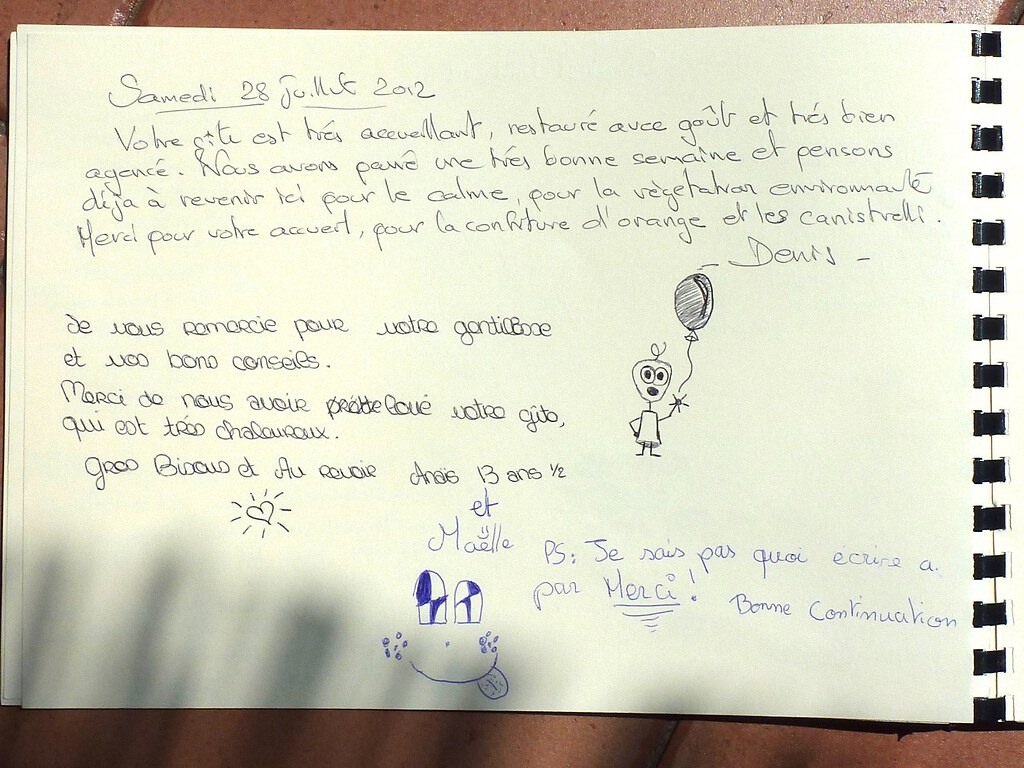 Samedi 28 Juillet 2012
Votre gîte est trés accueillant, restauré avec goût et trés bien
agencé. Nous avons passé une trés bonne semaine et pensons
déja à revenir ici pour le calme, pour la végétation environnante
Merci pour votre accueil, pour la confiture d'orange et les canistrelli.
- Denis -
Je vous remercie pour votre gentillesse
et vos bons conseils.
Merci de nous avoir loué votre gite,
qui est très chaleureux.
Gros Bisous et Au revoir Anaïs 13 ans ½
et
Maëlle
PS: Je sais pas quoi écrire a.
par Merci! Bonne Continuation